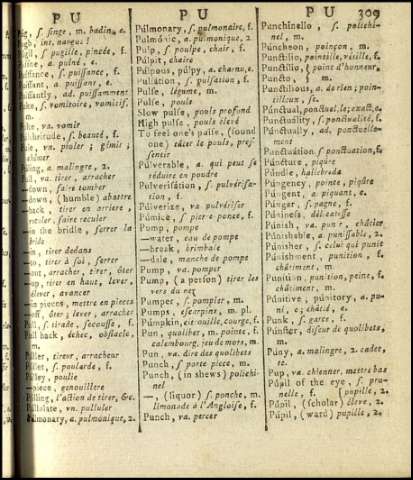 P U
P U
P U 309
f. singe, m. badin, e.
ins. nargue !
f. pugille, pincée, f.
a. puîné, e.
f. puissance, f.
a. puissant, e.
ad. puissamment
f. vomitoire, vomitif.
m.
va. vomir
f. beauté, f.
vn. pioler ; gémir ;
a. malingre, 2.
va. tirer, arracher
—down, faire tomber
—down, (humble) abattre
—back, tirer en arriere,
reculer, faire reculer
—in the bridle, serrer la
bride
—in, tirer dedans
—to, tirer à soi, serrer
—out, arracher, tirer, ôter
—up, tirer en haut, lever,
élever, avancer
—in pieces, mettre en pieces
—off, ôter ; lever, arracher
Pull, f. tirade, secousse, f.
Pull back, échec, obstacle,
Puller, tireur, arracheur
Pullet, f. poularde, f.
Pulley, poulie
—piece, genouillere
Pulling, l'action de tirer, &c.
Pullulate, vn. pulluler
Pulmonary, a. pulmonique, 2.
Púlmonary, f. pulmonaire, f.
Pulmónic, a. pulmonique, 2.
Pulp, f. poulpe, chair, f.
Púlpit, chaire
Púlpous, púlpy, a. charnu, e.
Pulsátion, f. pulsation, f.
Pulse, légume, m.
Pulse, pouls
Slow pulse, pouls profond
High pulse, pouls élevé
To feel one's pulse, (sound
one) tâter le pouls, pres-
sentir
Púlverable, a. qui peut se
réduire en poudre
Pulverisátion, f. pulvérisa-
tion, f.
Púlverize, va. pulvériser
Púmice, f. pierre ponce, f.
Pump, pompe
—water, eau de pompe
—break, brimbale
—dale, manche de pompe
Pump, va. pomper
Pump, (a person) tirer les
vers du nez
Pumper, f. pompier, m.
Pumps, escarpins, m. pl.
Púmpkin, citrouille, courge, f.
Pun, quolibet, m. pointe, f.
calembourg, jeu de mots, m.
Pun, va. dire des quolibets
Punch, f. porte piece, m.
Punch, (in shews) polichi-
nel
—, (liquor) f. ponche, m.
limonade à l'Angloise, f.
Punch, va. percer
Punchinello, f. polichi-
nel, m.
Púncheon, poinçon, m.
Punctílio, pointille, vétille, f.
Punctílio, point d'honneur,
Púncto, m.
Punctílious, a. de rien ; poin-
tilleux, se.
Púnctual, ponctuel, le ; exact, e,
Punctuálity, f. ponctualité, f.
Púnctually, ad. ponctuelle-
ment
Punctuátion, f. ponctuation, f.
Púncture, piqûre
Púndle, hallebreda
Púngency, pointe, piqûre
Púngent, a. piquant, e.
Púnger, f. pagne, f.
Púniness, délicatesse
Púnish, va. punir, châtier
Púnishable, a. punissable, 2.
Púnisher, f. celui qui punit
Púnishment, punition, f.
châtiment, m.
Punítion, punition, peine, f.
châtiment, m.
Púnitive, púnitory, a. pu-
ni, e ; châtié, e.
Punk, f. garce, f.
Púnster, diseur de quolibets,
m.
Púny, a. malingre, 2. cadet,
te.
Pup, va. chienner, mettre bas
Púpil of the eye, f. pru-
nelle, f. [pupille, 2.
Púpil, (scholar) éleve, 2.
Púpil, (ward) pupille, 2.